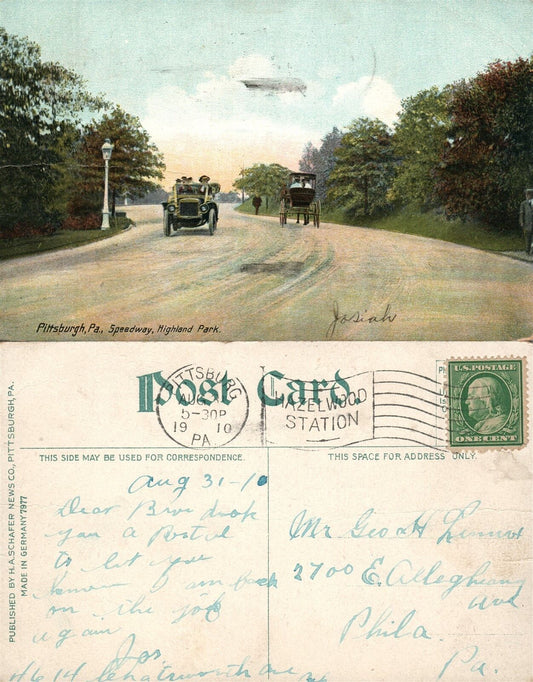 Pittsburgh, Pa., Speedway, Highland Park.
Josiah
Post Card.
PITTSBURG
AUG
5-30P
19 10
PA
HAZELWOOD
STATION
U.S. POSTAGE
ONE CENT
THIS SIDE MAY BE USED FOR CORRESPONDENCE.
THIS SPACE FOR ADDRESS ONLY.
PUBLISHED BY H.A. SCHAFER NEWS CO., PITTSBURGH, PA.
MADE IN GERMANY 7977
Aug 31-10
Dear
you a Postal
to let you
know I am back
on the job
again
Jos
4614 Chatsworth Ave
Mr Geo H
2700 E. Allegheny
Ave.
Phila.
Pa.